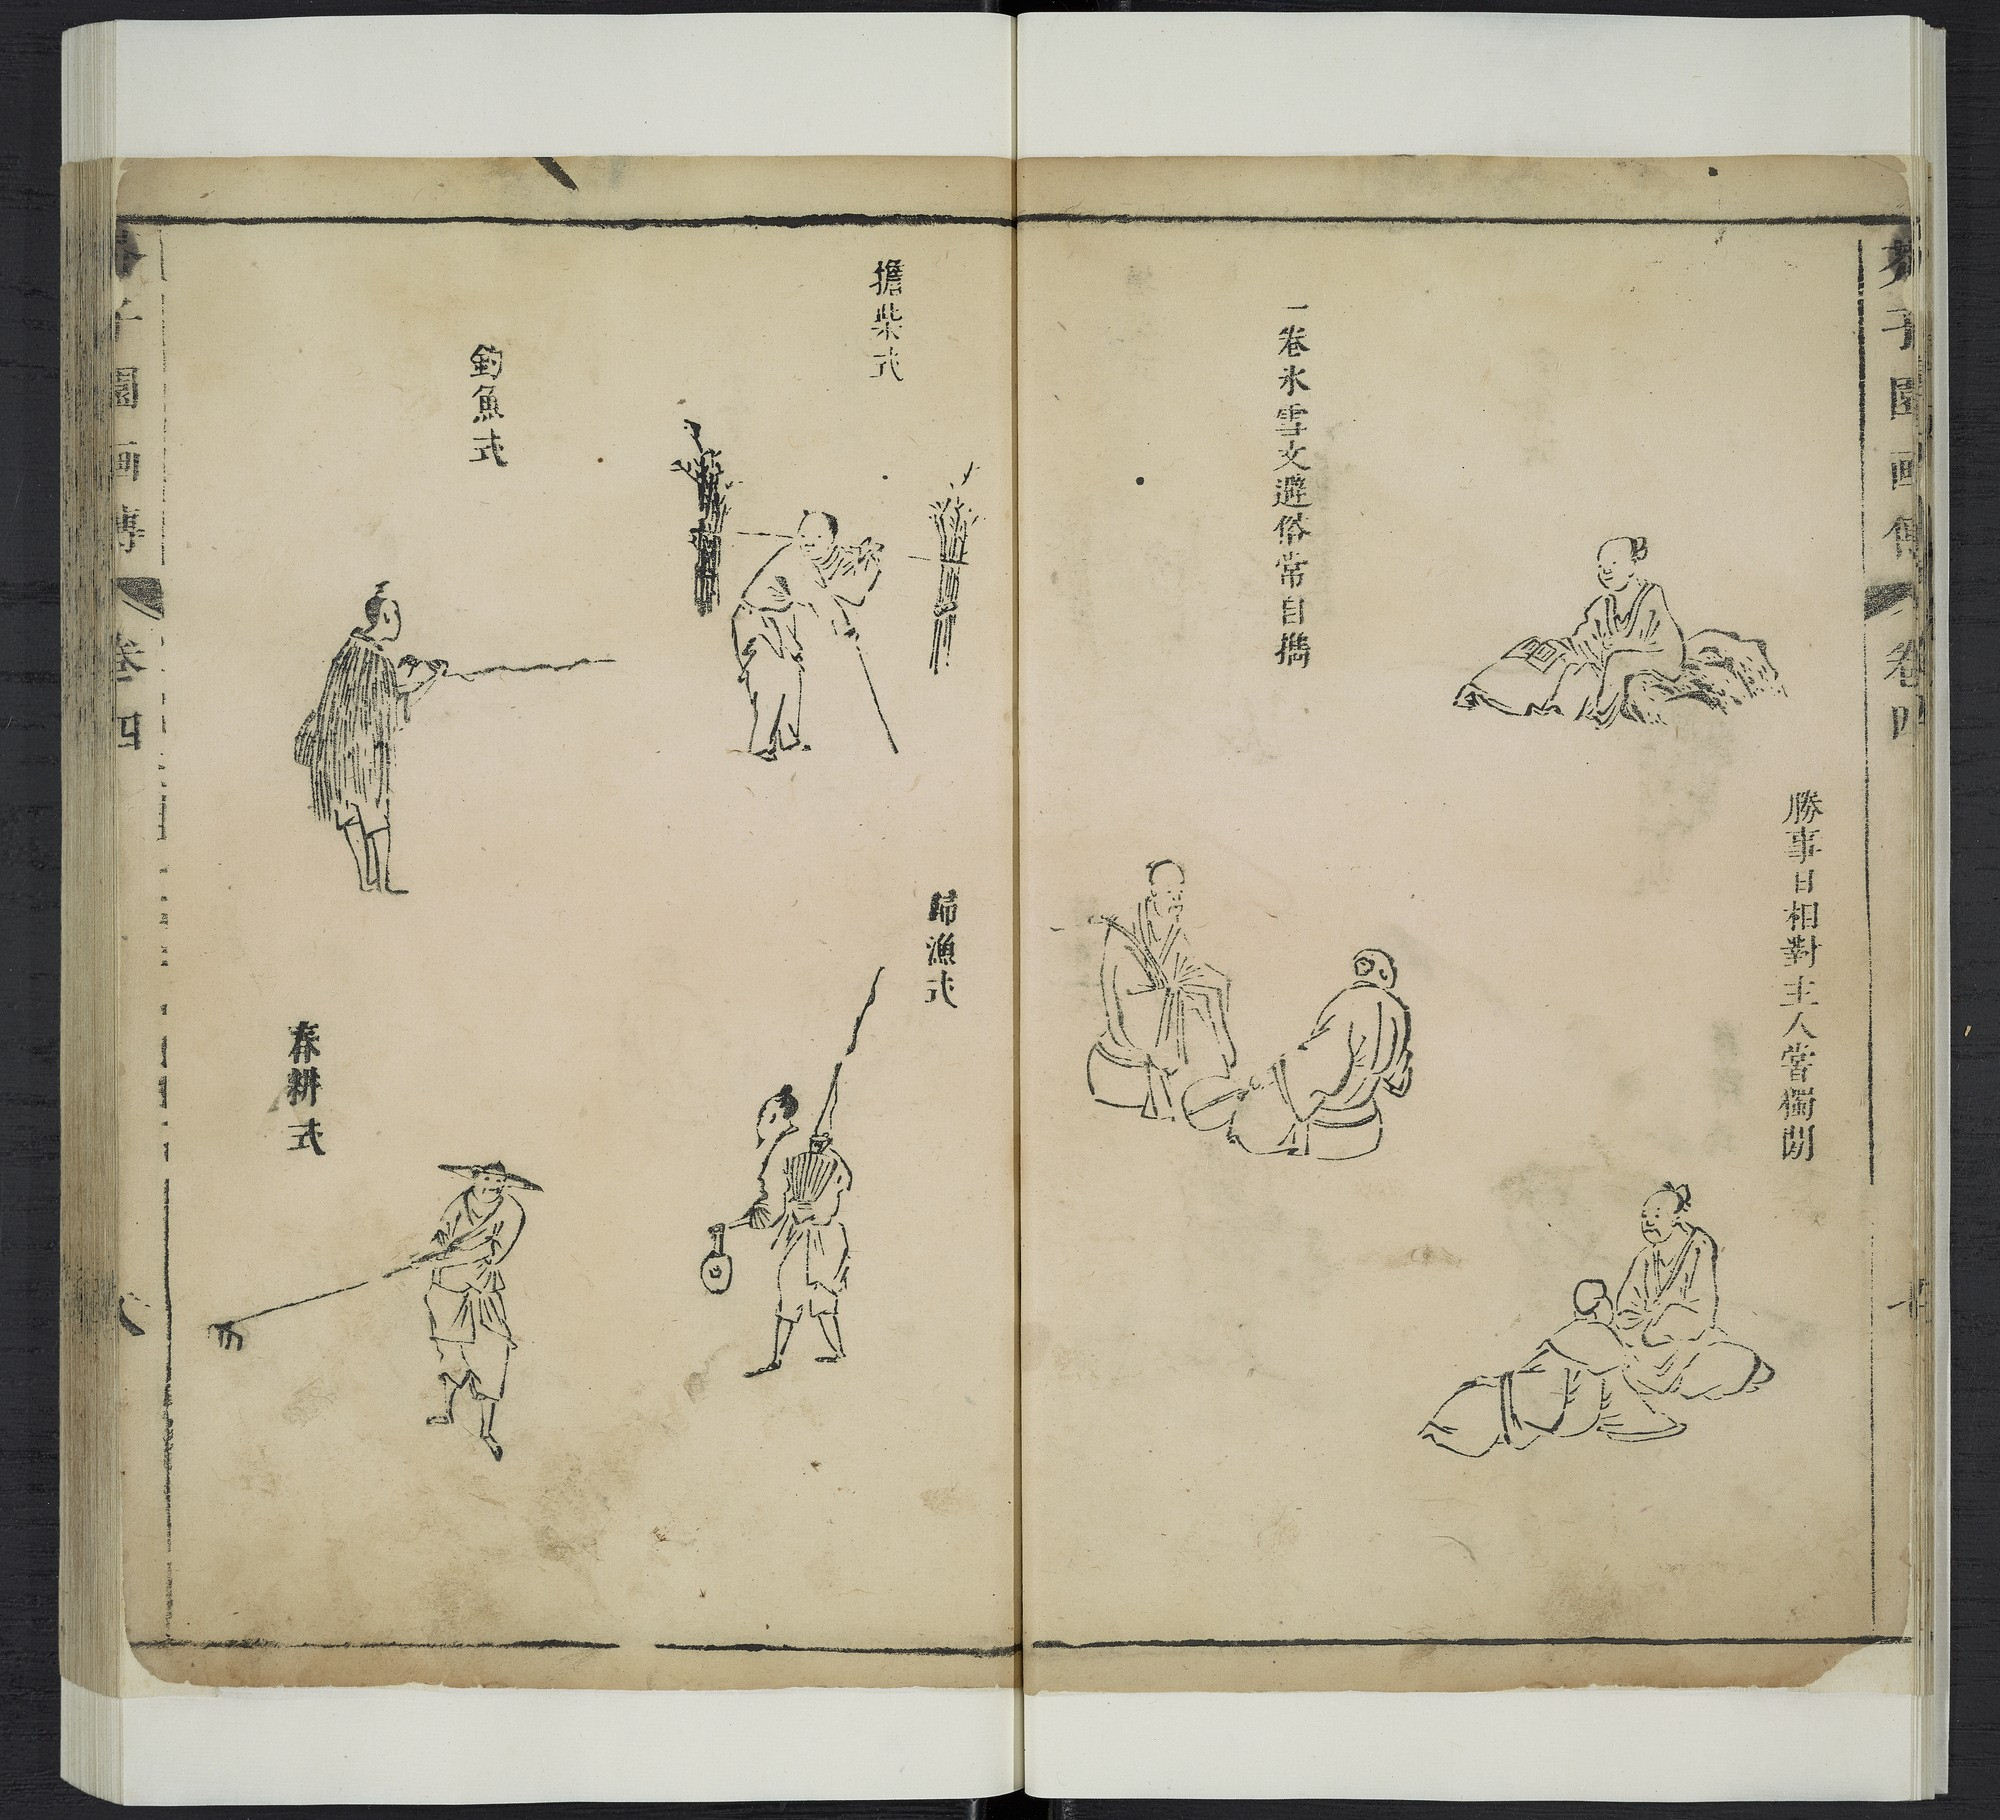 芥子園画傳 卷四
勝事日相對主人常獨閒
一卷氷雪文避俗常自擕
擔柴式
歸漁式
釣魚式
春耕式
子園画傳 卷四